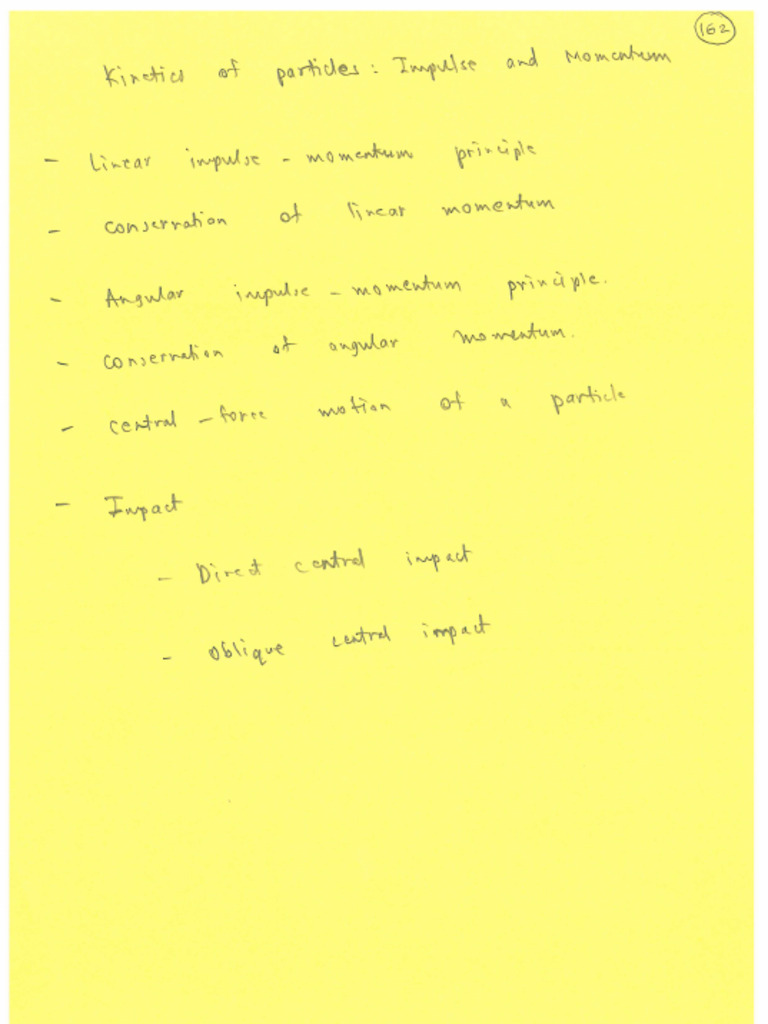 162
Kinetics of particles: Impulse and Momentum
- Linear impulse - momentum principle
- conservation of linear momentum
- Angular impulse - momentum principle.
- conservation of angular momentum.
- central - force motion of a particle
- Impact
- Direct central impact
- Oblique central impact